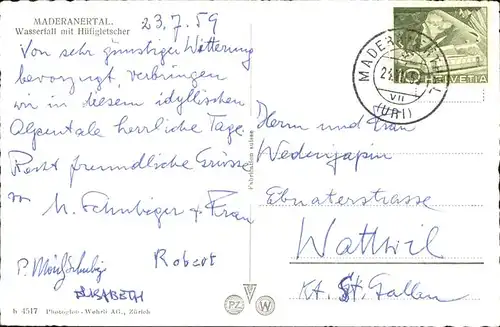 MADERANERTAL.
Wasserfall mit Hüfigletscher
23.7.59
Von sehr günstiger Witterung
bevorzugt, verbringen
wir in diesem idyllischen
Alpentale herrliche Tage.
Recht freundliche Grüsse
von
& Frau
Robert
ELISABETH
h 4517 Photoglob-Wehrli AG., Zürich
PZ W
MADERANERTAL
VII
(URI)
HELVETIA
Herrn und Frau
Ebnaterstrasse
Wattwil
Kt. St. Gallen